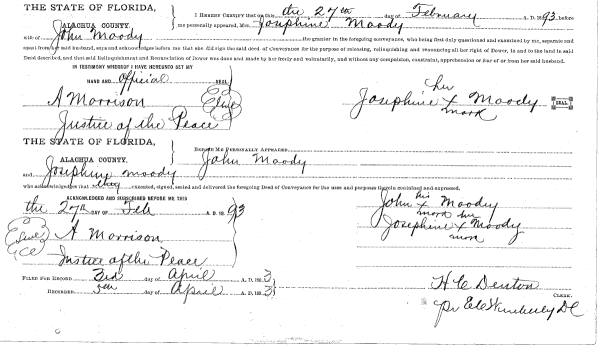 THE STATE OF FLORIDA,
ALACHUA COUNTY.
I HEREBY CERTIFY that on this the 27th day of February A. D. 1893 before
me personally appeared, Mrs. Josephine Moody
wife of John Moody the grantor in the foregoing conveyance, who being first duly questioned and examined by me, separate and
apart from her said husband, says and acknowledges before me that she did sign the said deed of Conveyance for the purpose of releasing, relinquishing and renouncing all her right of Dower, in and to the land in said
Deed described, and that said Relinquishment and Renunciation of Dower was done and made by her freely and voluntarily, and without any compulsion, constraint, apprehension or fear of or from her said husband.
IN TESTIMONY WHEREOF I HAVE HEREUNTO SET MY
HAND AND Official SEAL
A Morrison
Justice of the Peace
her
Josephine x Moody SEAL
mark
THE STATE OF FLORIDA,
ALACHUA COUNTY.
BEFORE ME PERSONALLY APPEARED
John Moody
and Josephine Moody
who acknowledges that they executed, signed, sealed and delivered the foregoing Deed of Conveyance for the uses and purposes therein contained and expressed.
ACKNOWLEDGED AND SUBSCRIBED BEFORE ME THIS
the 27th DAY OF Feb A. D. 1893
A Morrison
Justice of the Peace
his
John x Moody
mark her
Josephine x Moody
mark
FILED FOR RECORD 3rd day of April A. D. 1893
RECORDED 5th day of April A. D. 1893
H C Denton
CLERK.
pr E C Wimberly DC